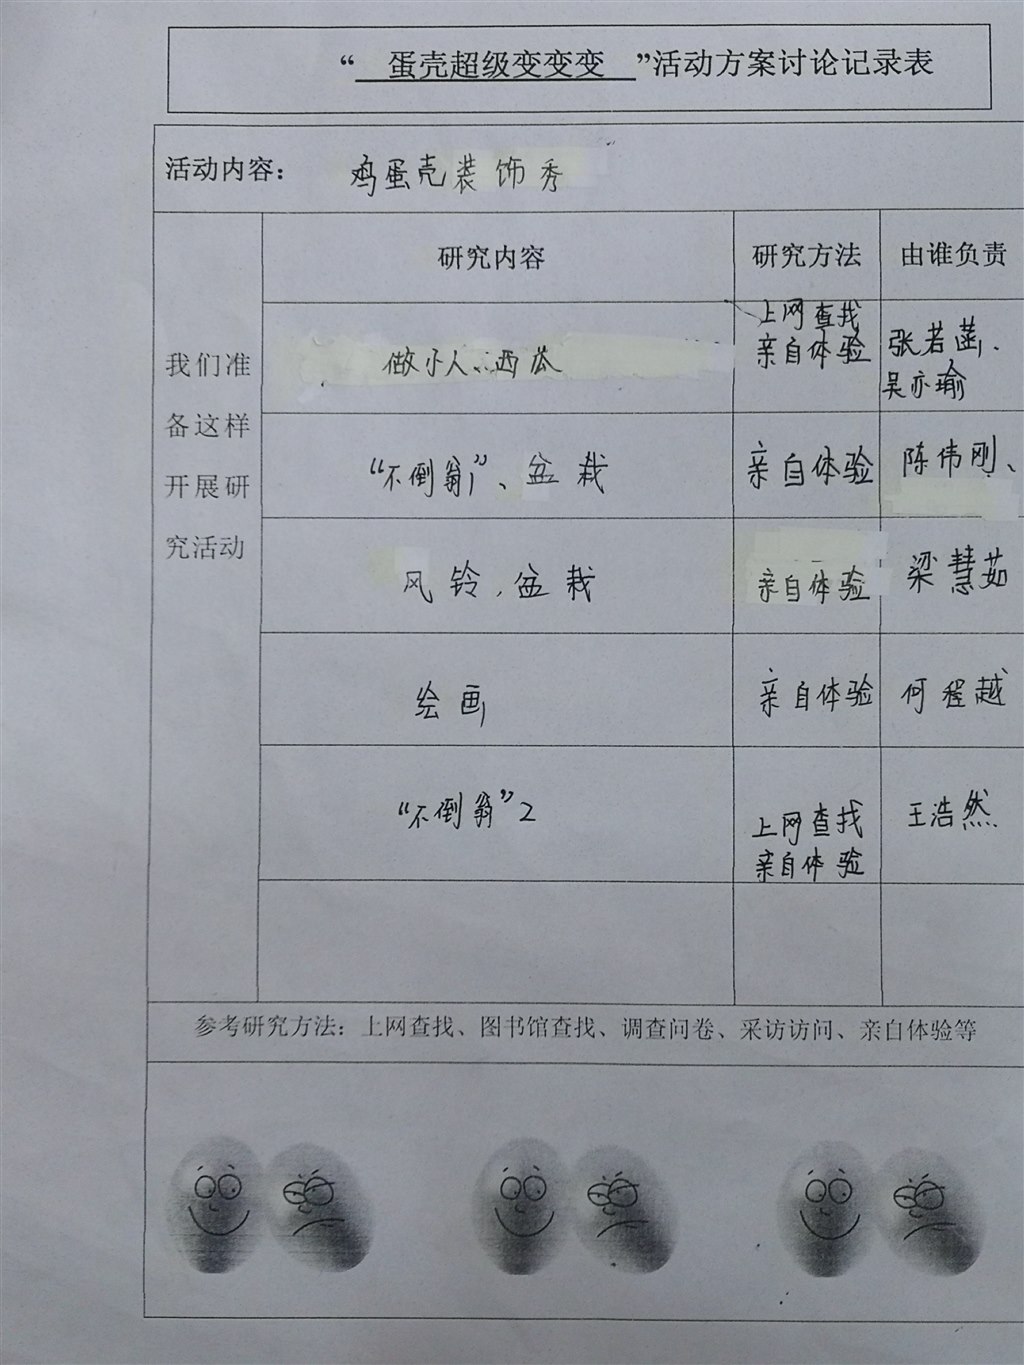 “ 蛋壳超级变变变 ”活动方案讨论记录表
活动内容： 鸡蛋壳装饰秀
我们准
备这样
开展研
究活动
研究内容 研究方法 由谁负责
做小人、西瓜 上网查找
亲自体验 张若菡、
吴亦瑜
“不倒翁1”、盆栽 亲自体验 陈伟刚、
风铃、盆栽 亲自体验 梁慧茹
绘画 亲自体验 何程越
“不倒翁”2 上网查找
亲自体验 王浩然
参考研究方法：上网查找、图书馆查找、调查问卷、采访访问、亲自体验等